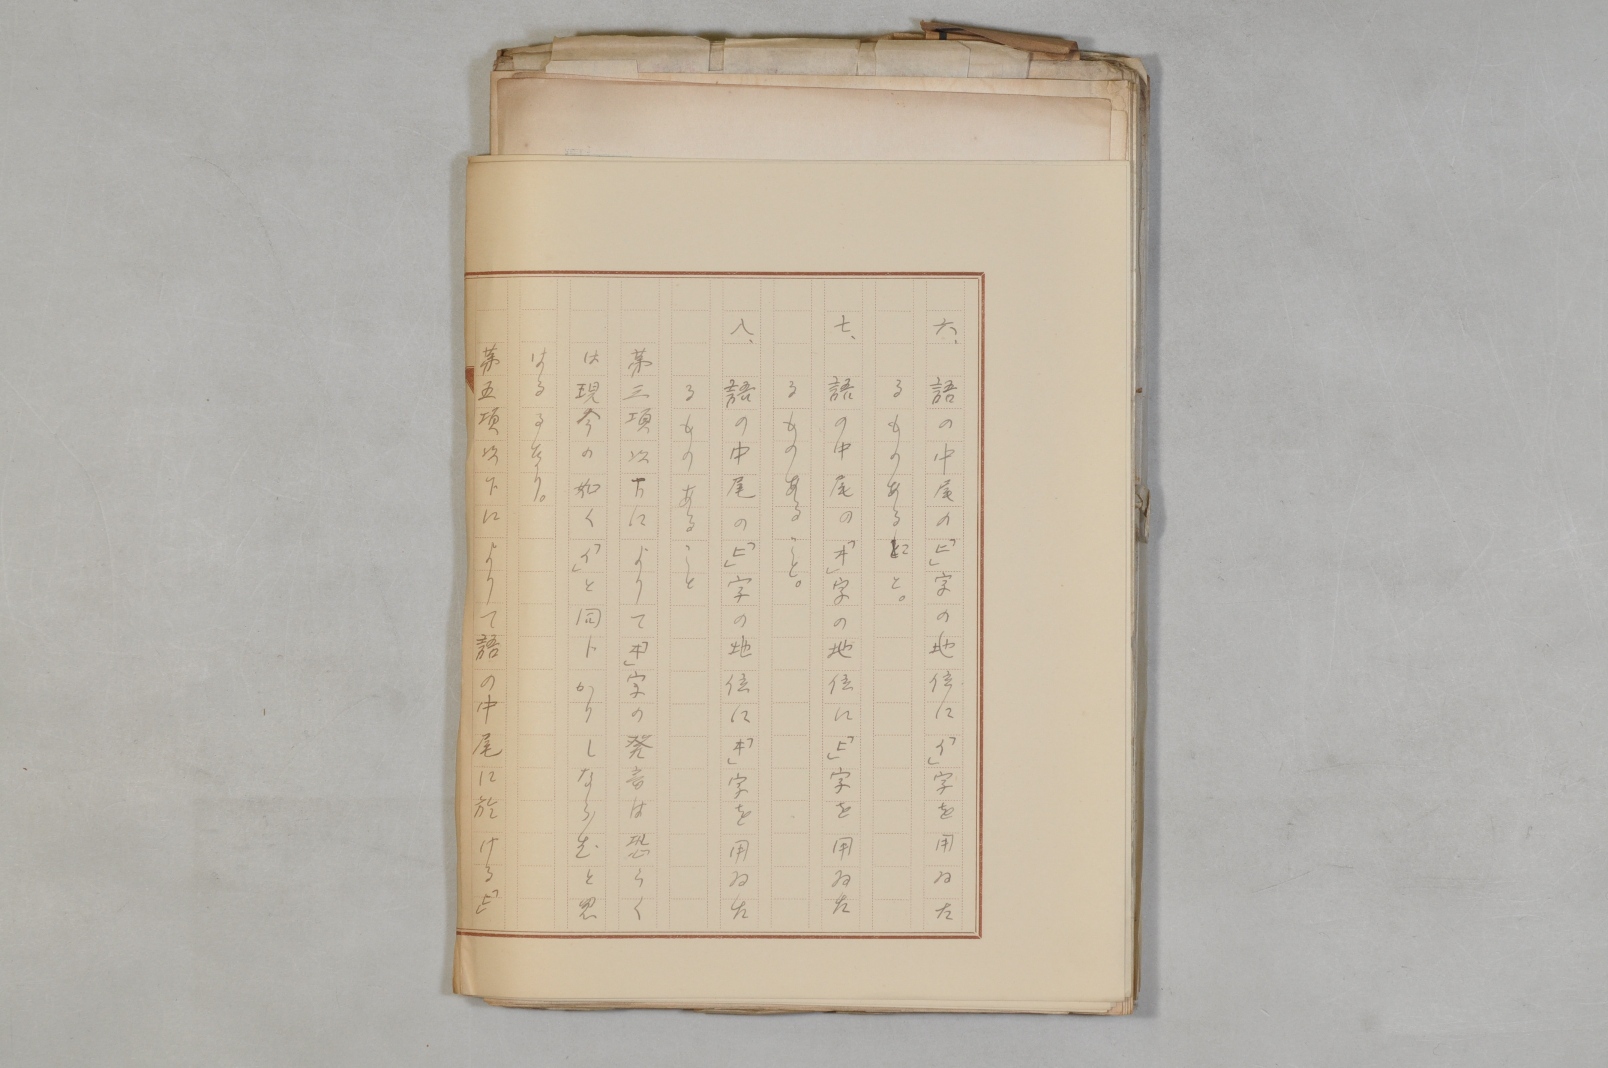 六、語の中尾の「ヒ」字の地位に「イ」字を用ゐた
るものあること。
七、語の中尾の「ヰ」字の地位に「ヒ」字を用ゐた
るものあること。
八、語の中尾の「ヒ」字の地位に「ヰ」字を用ゐた
るものあること
第三項以下によりて「ヰ」字の発音は恐らく
は現今の如く「イ」と同じかりしならむと思
はるるなり。
第五項以下によりて語の中尾に於ける「ヒ」